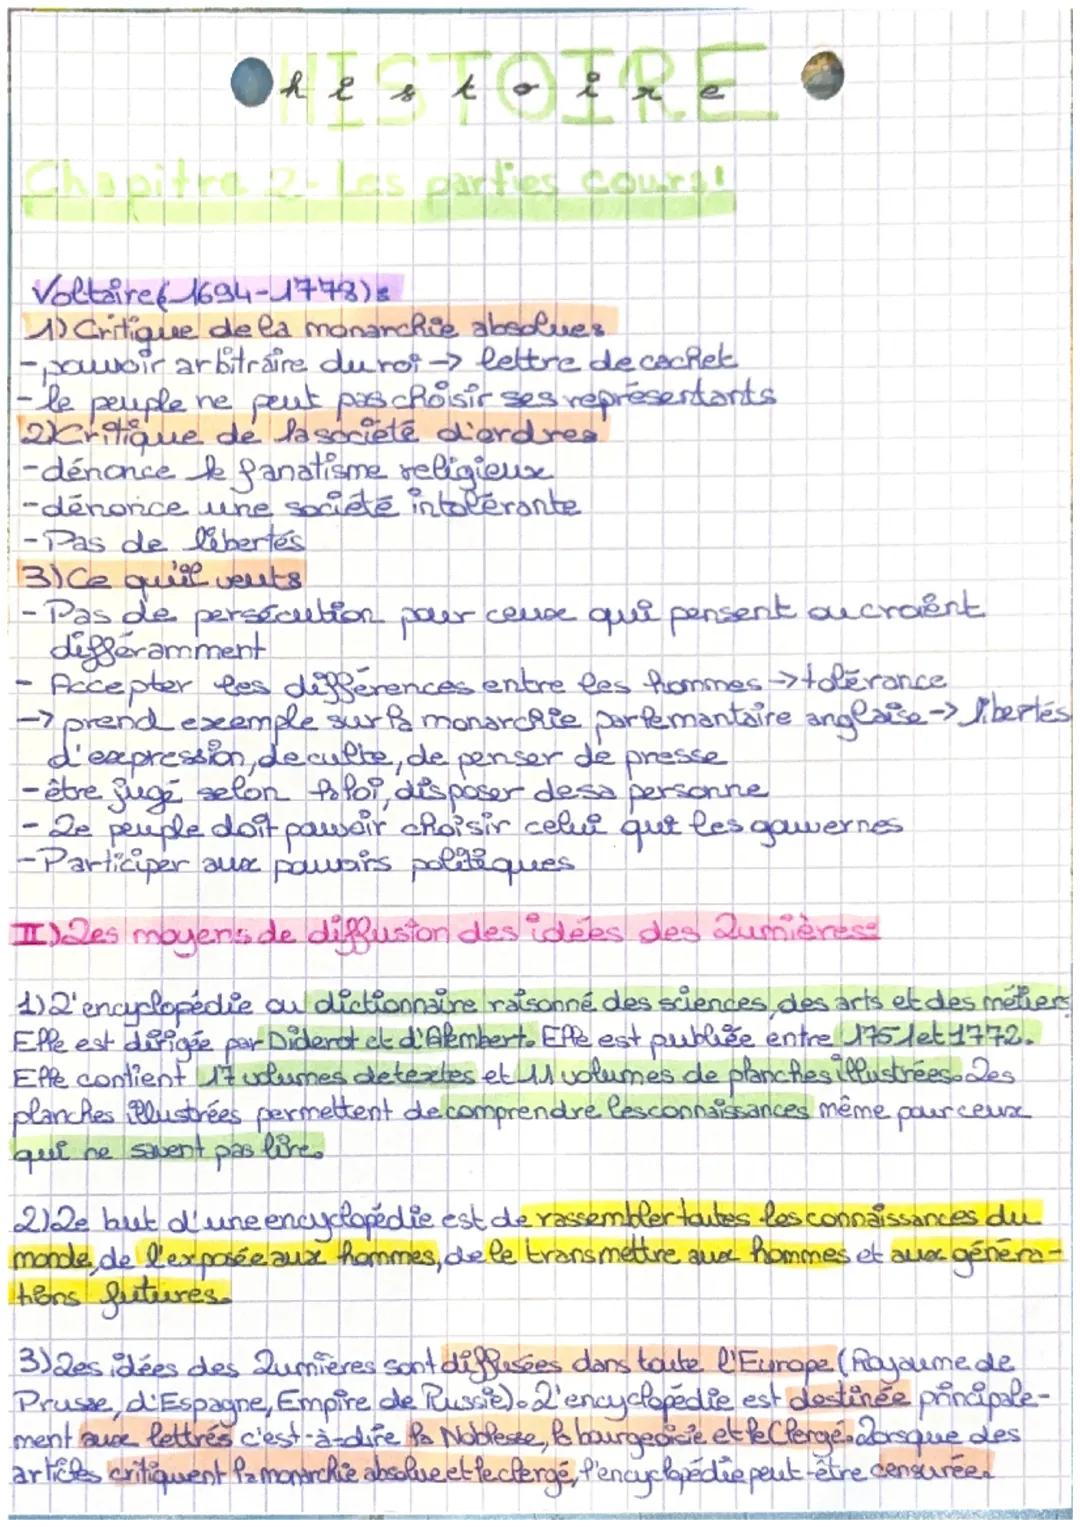 HISTOIRE
histoire
Chapitre 2- Les parties cours:
Voltaire (1694-1778):
1) Critique de la monarchie absolue:
-pouvoir arbitraire du roi → lettre de cachet
-le peuple ne peut pas choisir ses représentants
2) Critique de la société d'ordres
-dénonce le fanatisme religieux
-dénonce une société intolérante
-Pas de libertés
3) Ce qu'il veut:
- Pas de persécution pour ceux qui pensent ou croient
différamment
- Accepter les différences entre les hommes → tolérance
→ prend exemple sur la monarchie parlemantaire anglaise → libertés
d'expression, de culte, de penser de presse
-être jugé selon la loi, disposer de sa personne
- Le peuple doit pouvoir choisir celui qui les gouvernes
-Participer aux pouvoirs politiques
II) Les moyens de diffusion des idées des Lumières:
1) L'encyclopédie ou dictionnaire raisonné des sciences, des arts et des métiers
Elle est dirigée par Diderot et d'Alembert. Elle est publiée entre 1751 et 1772.
Elle contient 17 volumes de textes et 11 volumes de planches illustrées. Les
planches illustrées permettent de comprendre les connaissances même pour ceux
qui ne savent pas lire.
2) Le but d'une encyclopédie est de rassembler toutes les connaissances du
monde, de l'exposée aux hommes, de le transmettre aux hommes et aux généra-
tions futures.
3) Les idées des Lumières sont diffusées dans toute l'Europe (Royaume de
Prusse, d'Espagne, Empire de Russie). L'encyclopédie est destinée principale-
ment aux lettrés c'est-à-dire la Noblesse, la bourgeoisie et le Clergé. Lorsque des
articles critiquent la monarchie absolue et le clergé, l'encyclopédie peut-être censurée.